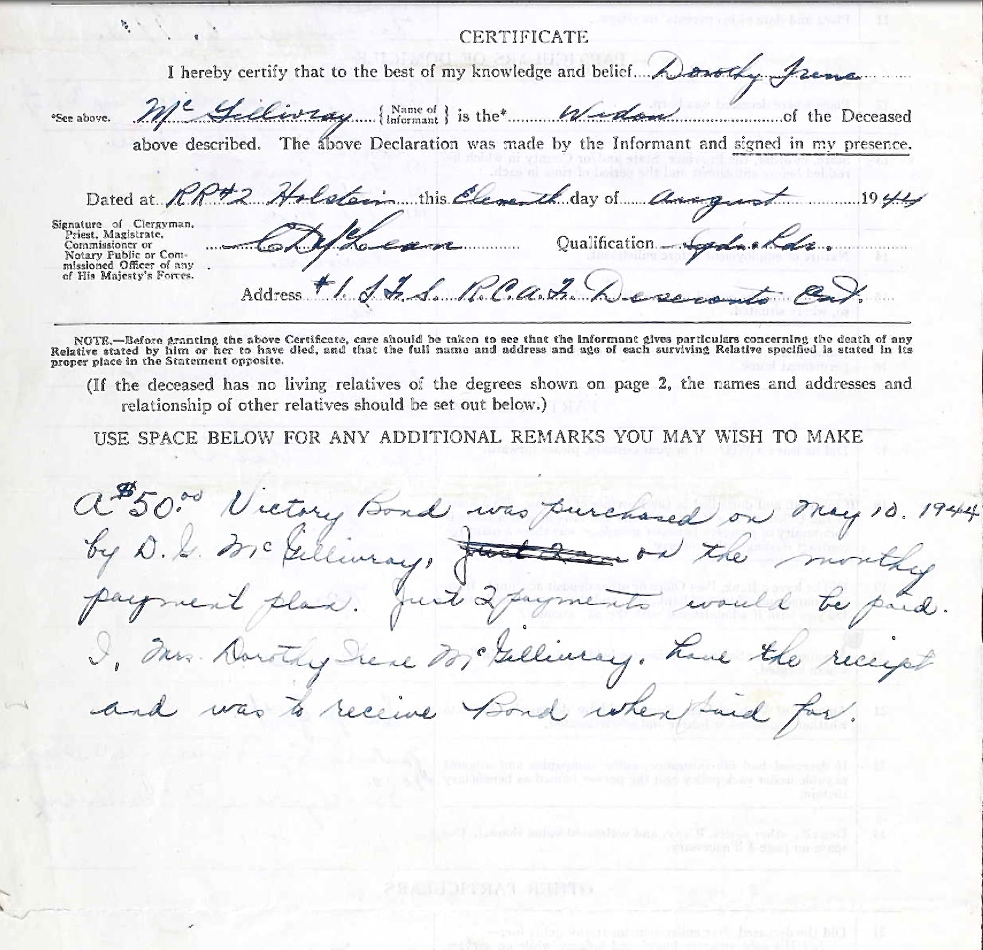 CERTIFICATE
I hereby certify that to the best of my knowledge and belief Dorothy Irene
*See above. McGillivray {Name of Informant} is the* Widow of the Deceased
above described. The above Declaration was made by the Informant and signed in my presence.
Dated at RR#2 Holstein this Eleventh day of August 1944
Signature of Clergyman,
Priest, Magistrate,
Commissioner or
Notary Public or Com-
missioned Officer of any
of His Majesty's Forces.
C D McLean Qualification Sqdn. Ldr.
Address #1. S.F.S. R.C.A.F. Deseronto Ont.
NOTE.—Before granting the above Certificate, care should be taken to see that the Informant gives particulars concerning the death of any
Relative stated by him or her to have died, and that the full name and address and age of each surviving Relative specified is stated in its
proper place in the Statement opposite.
(If the deceased has no living relatives of the degrees shown on page 2, the names and addresses and
relationship of other relatives should be set out below.)
USE SPACE BELOW FOR ANY ADDITIONAL REMARKS YOU MAY WISH TO MAKE
A $50.00 Victory Bond was purchased on May 10. 1944
by D. G. McGillivray, on the monthly
payment plan. Just 2 payments would be paid.
I, Mrs. Dorothy Irene McGillivray, have the receipt
and was to receive Bond when paid for.